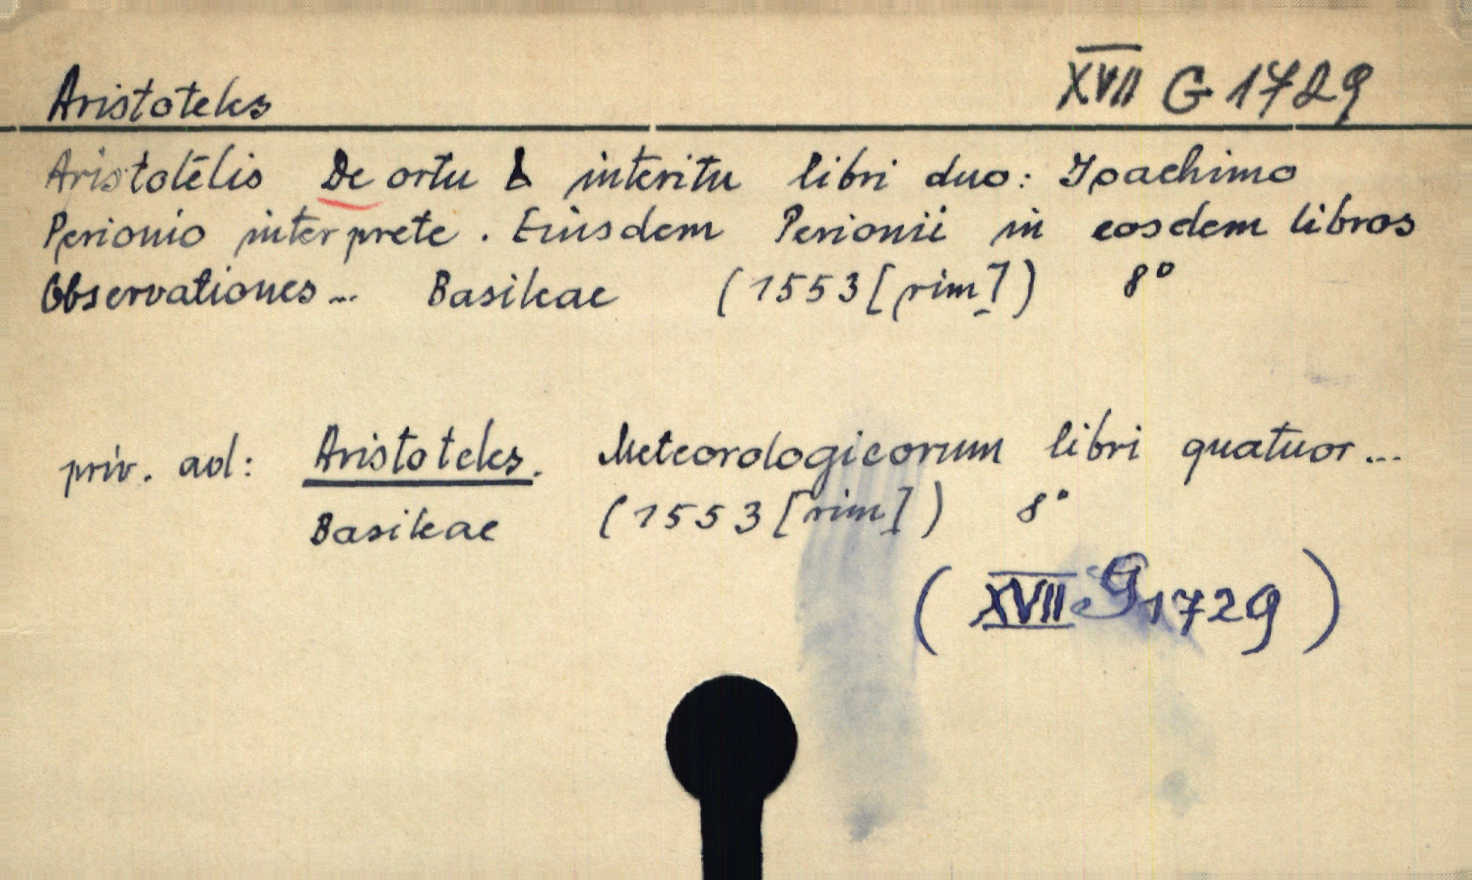 Aristoteles XVII G 1729
Aristotelis De ortu & interitu libri duo: Ioachimo
Perionio interprete. Eiusdem Perionii in eosdem libros
Observationes... Basileae (1553 [rim]) 8°
priv. ad: Aristoteles. Meteorologicorum libri quatuor...
Basileae (1553 [rim]) 8°
(XVII G 1729)